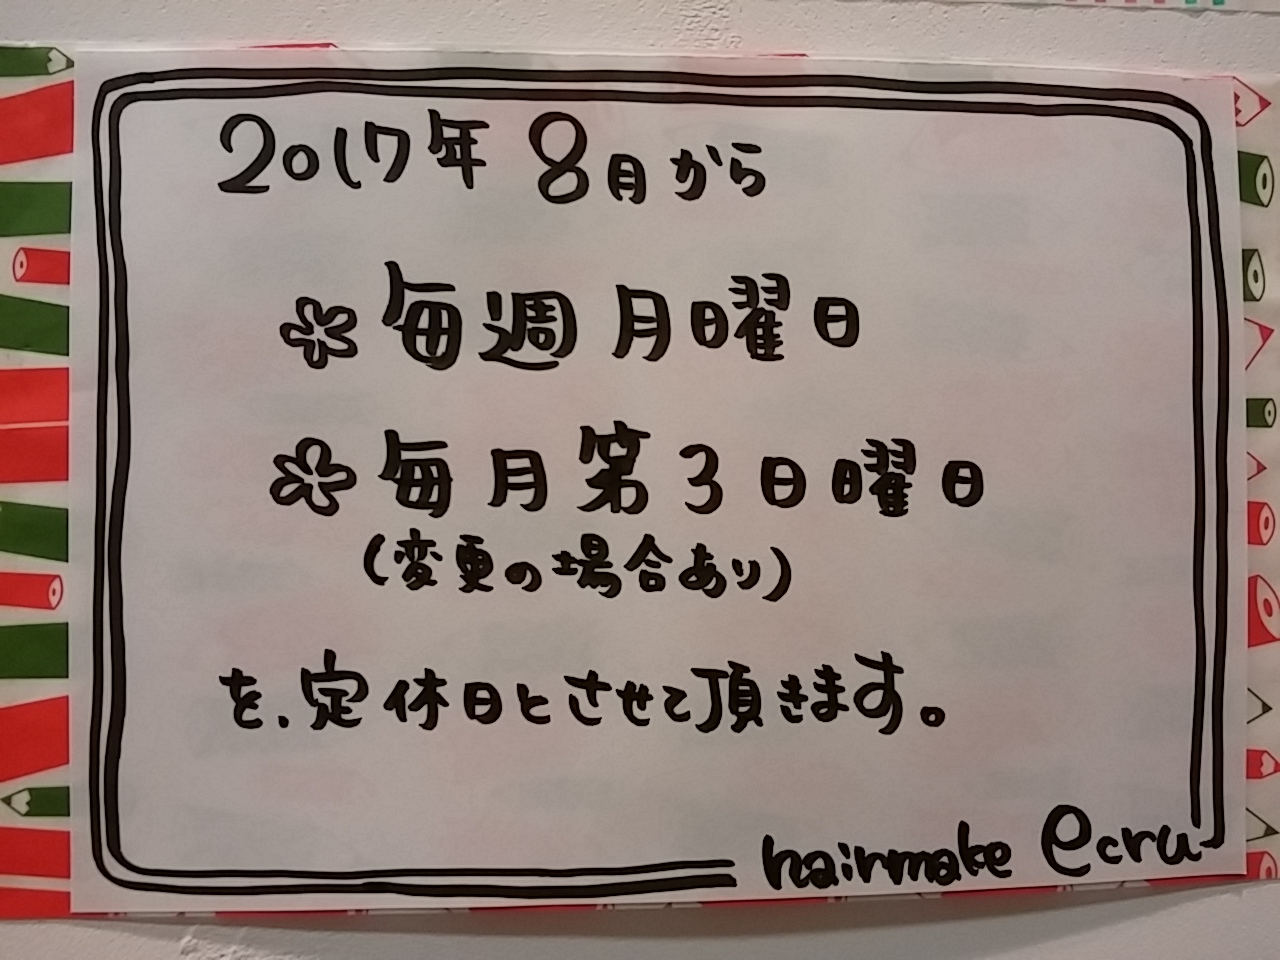 2017年 8月から
毎週月曜日
毎月第3日曜日
(変更の場合あり)
を、定休日とさせて頂きます。
hairmake ecru